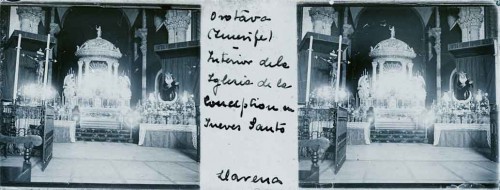 Orotava
(Tenerife)
Intérior dela
Iglesia de la
Conception en
Jueves Santo
Llarena